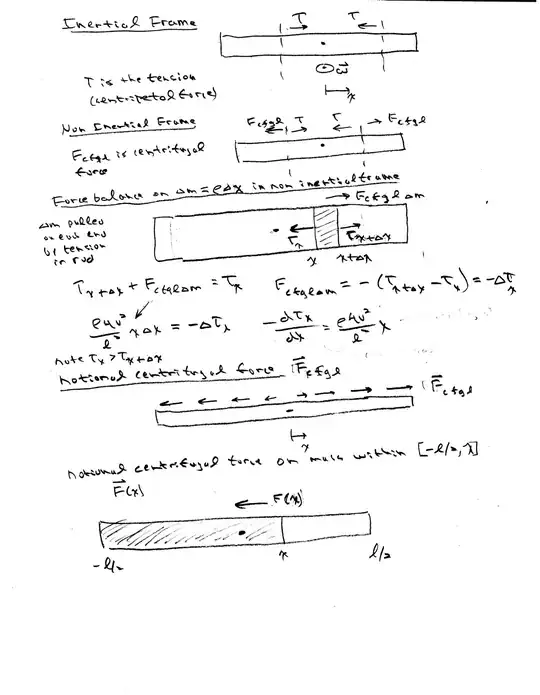 Inertial Frame
T T
T is the tension
(centripetal force)
ω
x
Non Inertial Frame
Fctgl T T Fctgl
Fctgl is centrifugal
force
Force balance on Δm = ρΔx in non inertial frame
Fctgl Δm
Δm pulled
on each end
by tension
in rod
Tx Tx+Δx
x x+Δx
Tx+Δx + FctglΔm = Tx FctglΔm = -(Tx+Δx - Tx) = -ΔTx
ρ4v²/l² xΔx = -ΔTx -dTx/dx = ρ4v²/l² x
note Tx > Tx+Δx
notional centrifugal force Fctgl
Fctgl
x
notional centrifugal force on mass within [-l/2, x]
F(x)
F(x)
-l/2 x l/2